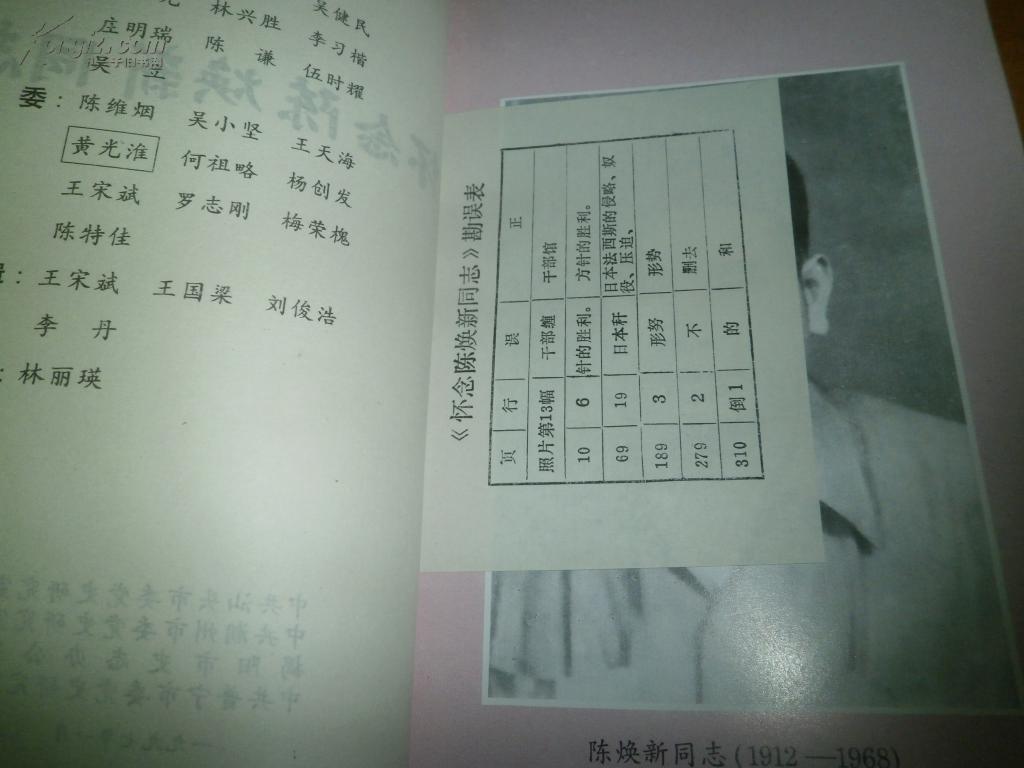 林兴胜 吴健民
庄明瑞 陈谦 李习楷
吴 伍时耀
委：陈维烟 吴小坚 王天海
黄光淮 何祖略 杨创发
王宋斌 罗志刚 梅荣槐
陈特佳
：王宋斌 王国梁 刘俊浩
李丹
：林丽瑛
《怀念陈焕新同志》勘误表
页 行 误 正
照片第13幅 干部缠 干部馆
10 6 针的胜利。 方针的胜利。
69 19 日本秆 日本法西斯的侵略、奴役、压迫、
189 3 形努 形势
279 2 不 删去
310 倒1 的 和
陈焕新同志(1912—1968)
怀念陈焕新同志
中共汕头市委党史研究
中共潮州市委党史研究
揭阳市史志办公
中共普宁市委党史研究
一九九七年一月